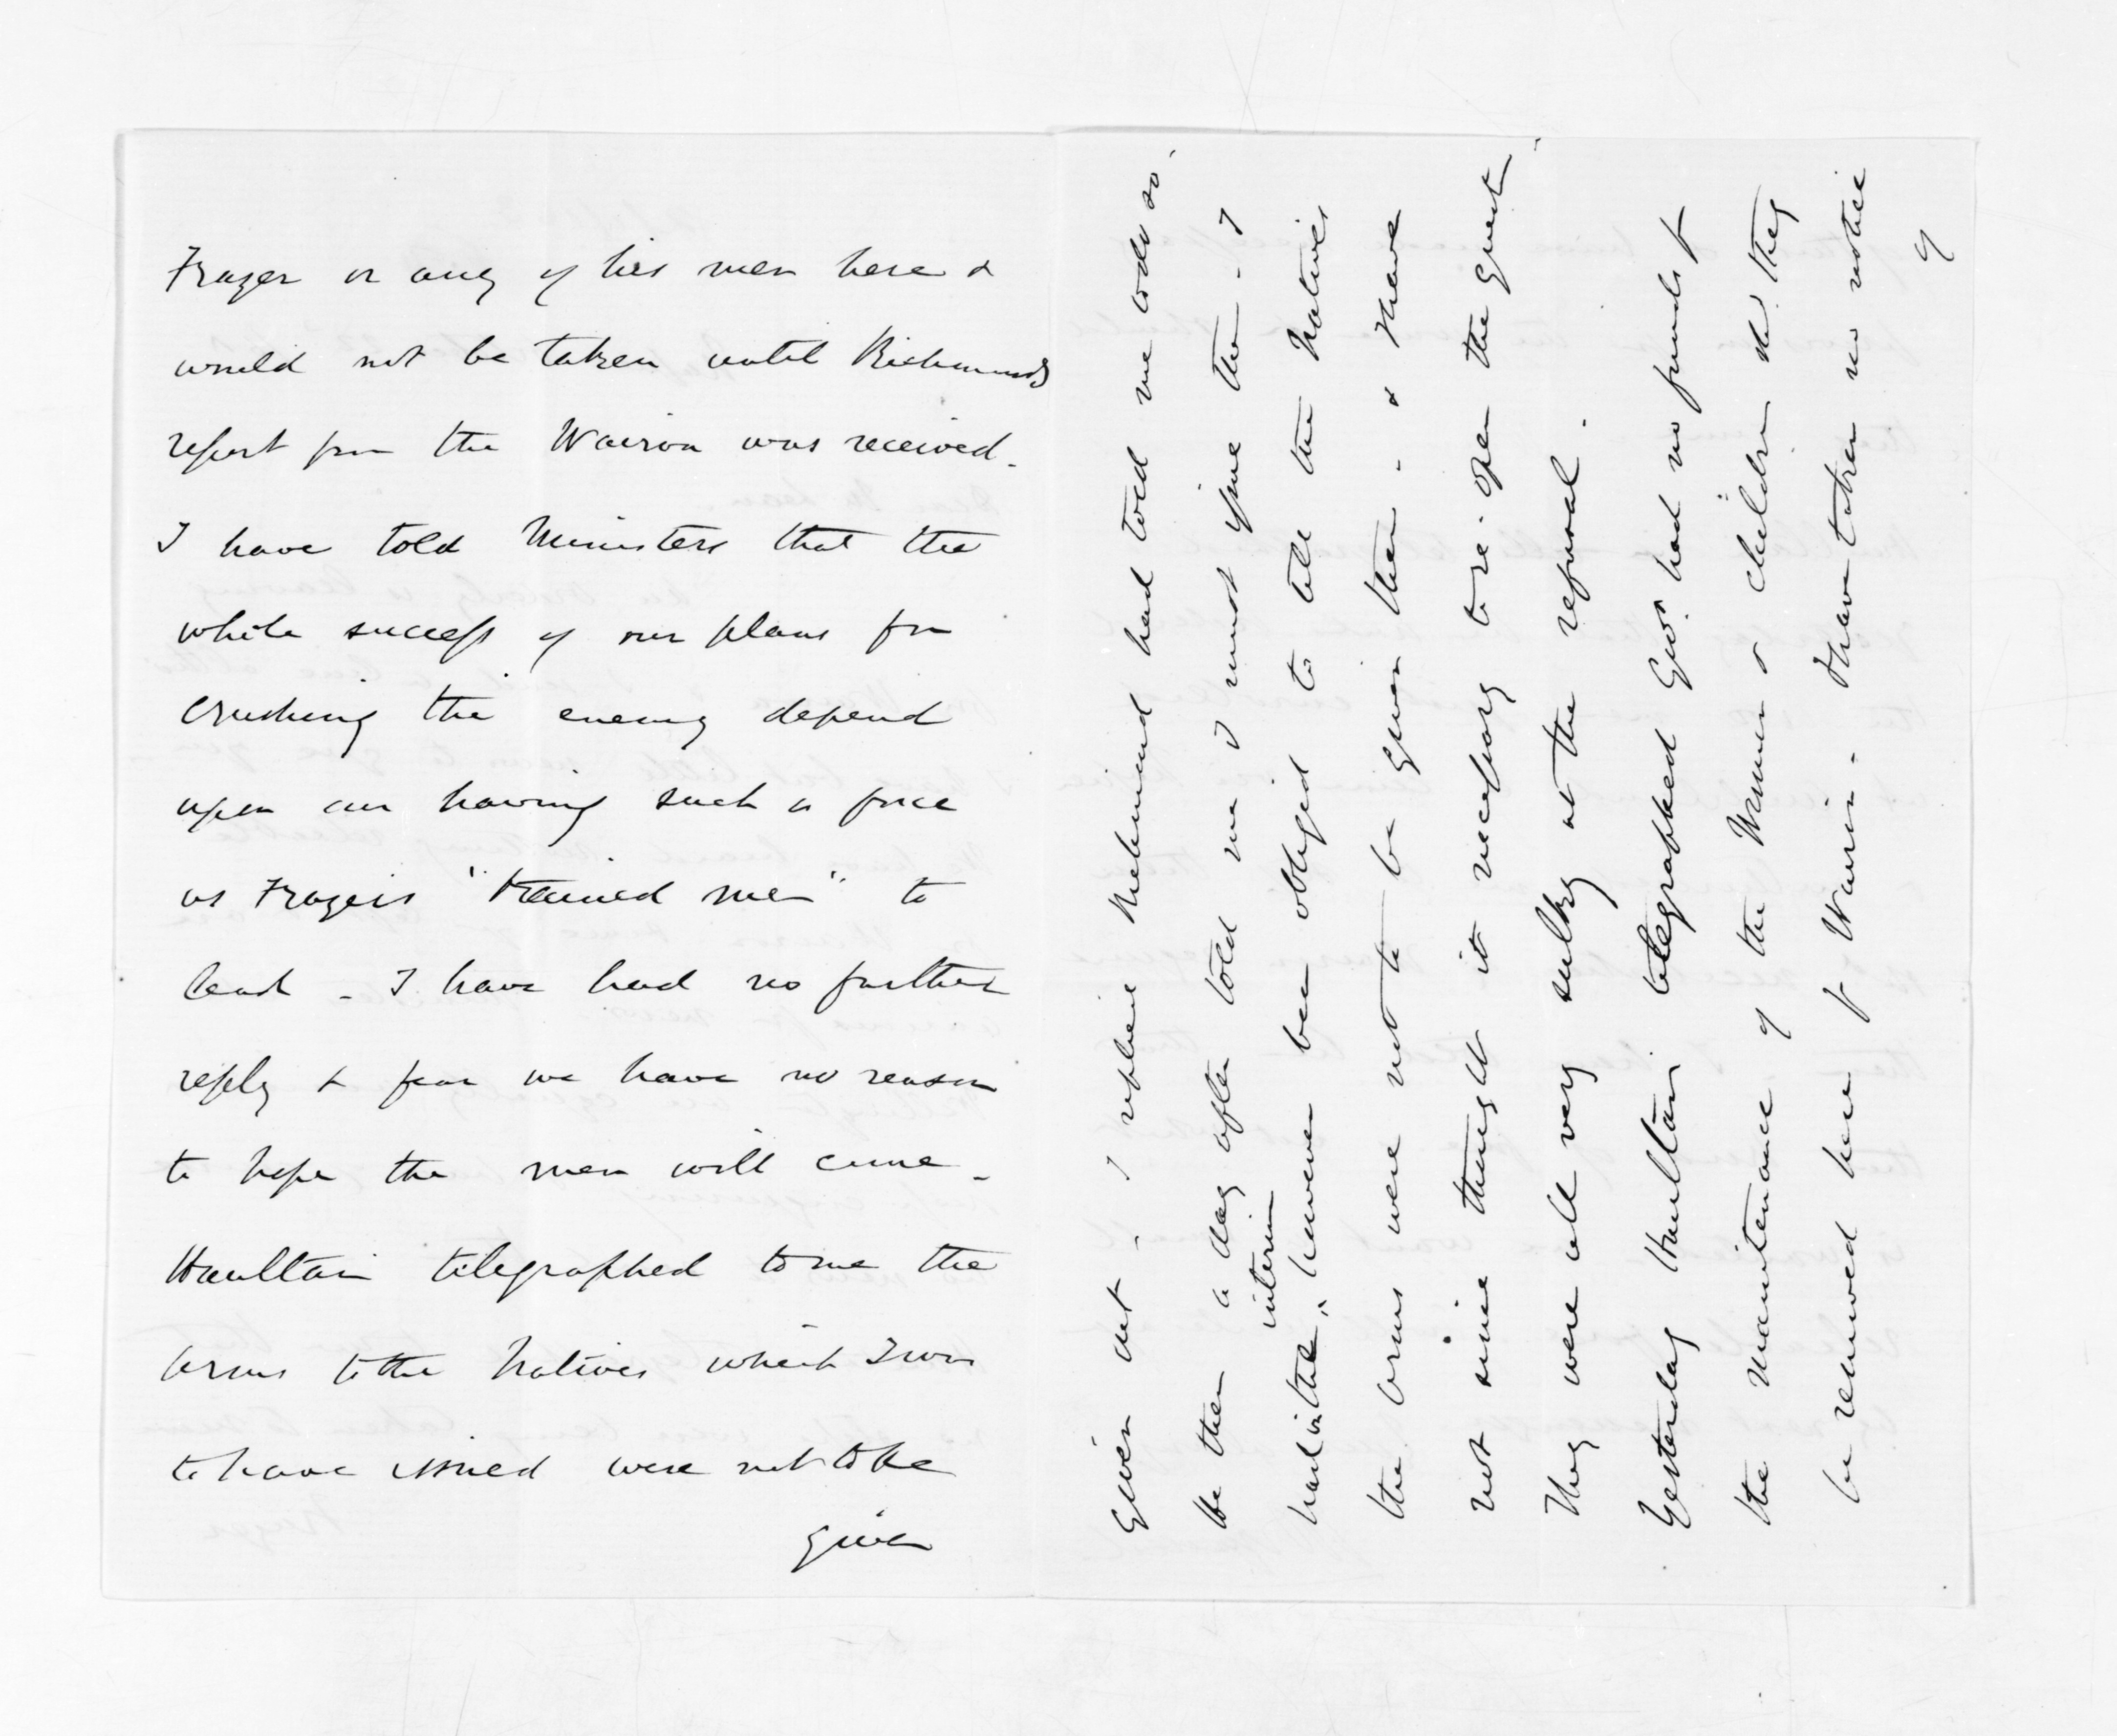 Frazer or any of his men here &
would not be taken until Richmonds
report from the Wairoa was received -
I have told Ministers that the
whole success of our plans for
crushing the enemy depend
upon our having such a force
as Frazers "trained men" to
lead - I have had no further
reply & fear we have no reason
to hope the men will come -
Haultain telegraphed to me the
arms to the Natives which I was
to have issued were not to be
given
given out - I replied Richmond had told me to do so.
He then a day after told me I must give them - I
had in the interim however been obliged to tell the Natives
the arms were not to be given them - & I have
not since thought it necessary to re-open the quest
They were all very sulky at the refusal.
Yesterday Haultain telegraphed Govr. had no funds fr
the maintenance of the Women & children st. they
be removed here fr Wairoa - I have taken no notice
of